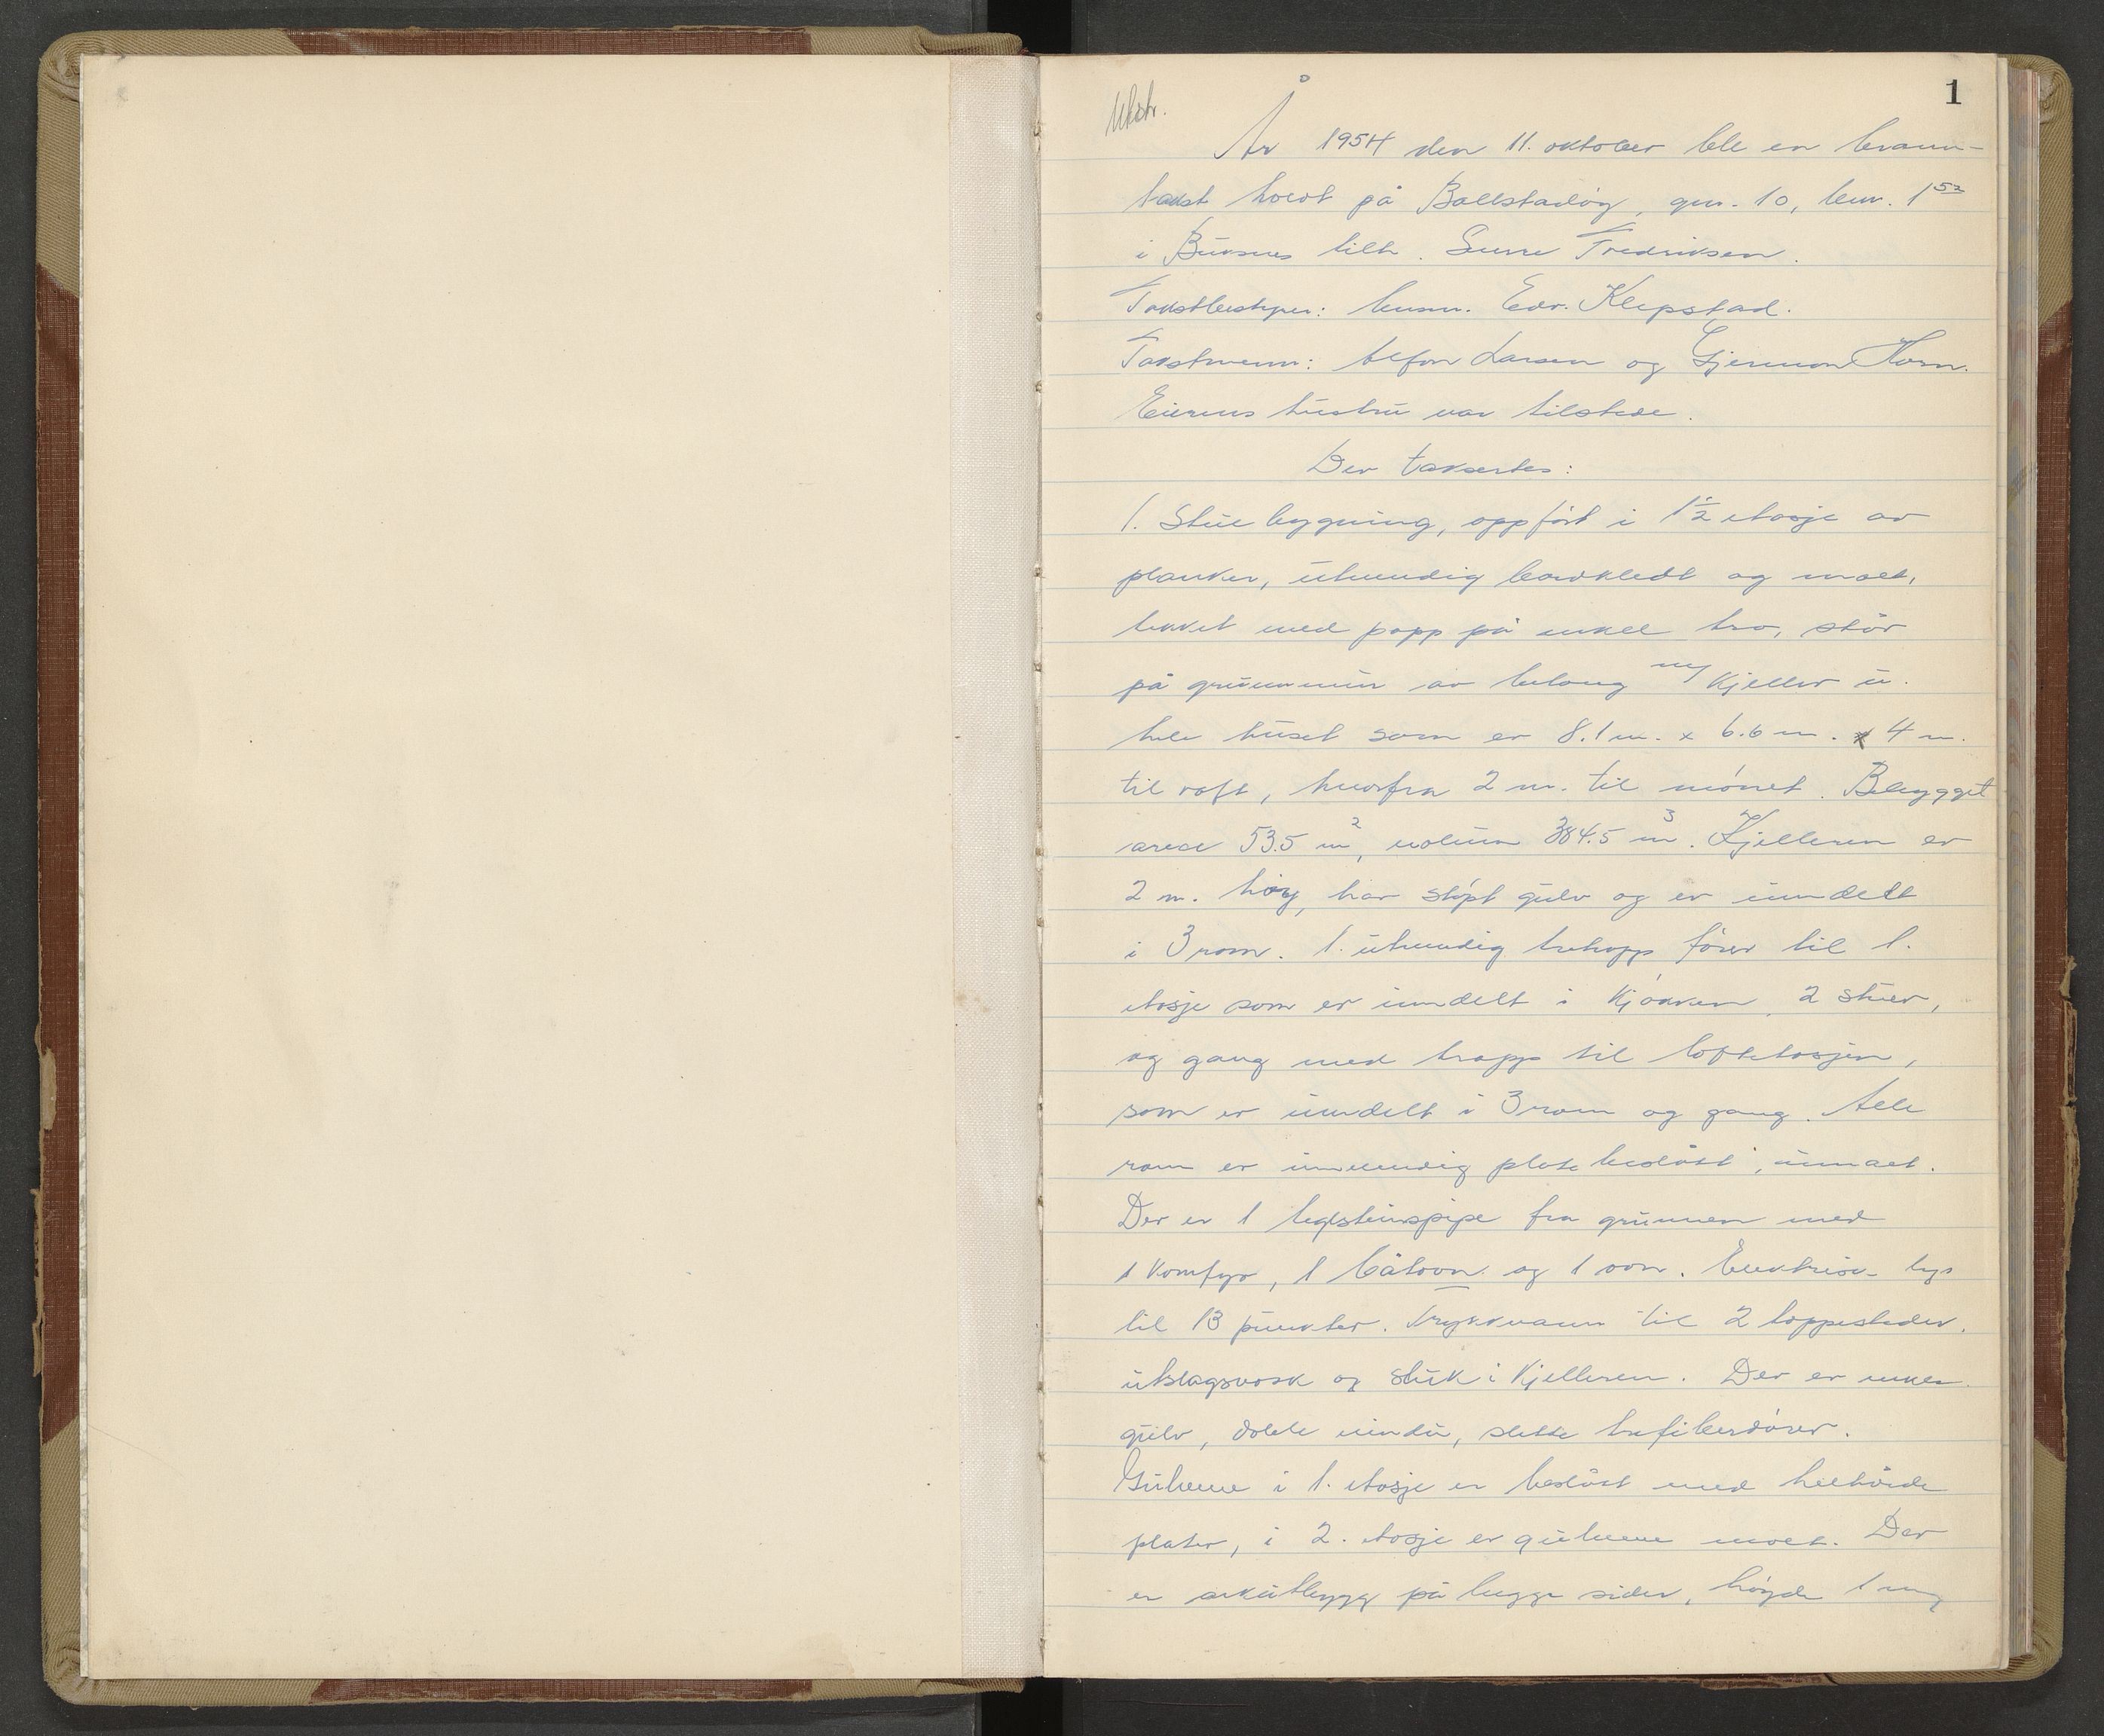 1
Utskr.
År 1954 den 11. oktober ble en brann-
takst holdt på Ballstadøy, gnr. 10, bnr. 1 52
i Buksnes tilh. Sverre Fredriksen.
Takstbestyrer: lensm. Edv. Klepstad.
Takstmenn: Alfon Larsen og Gjermon Horn.
Eierens hustru var tilstede.
Der takseres:
1. Stuebygning, oppført i 1 1/2 etasje av
planker, utvendig bordkledt og malt,
tekket med papp på enkel tro, står
på grunnmur av betong m/ kjeller u.
hele huset som er 8.1 m. x 6.6 m. x 4 m.
til raft, hvorfra 2 m. til mønet. Bebygget
areal 53.5 m², volum 384.5 m³. Kjelleren er
2 m. høy, har støpt gulv og er inndelt
i 3 rom. 1. utvendig tretrapp fører til 1.
etasje som er inndelt i kjøkken, 2 stuer,
og gang med trapp til loftetasjen,
som er inndelt i 3 rom og gang. Alle
rom er innvendig platebeslått, umalt.
Der er 1 teglsteinspipe fra grunnen med
1 komfyr, 1 låtovn og 1 ovn. Elektrisk lys
til 13 punkter. Trykkvann til 2 tappesteder,
utslagsvask og sluk i kjelleren. Der er enkel
gulv, doble vindu, slette trefiberdører.
Gulvene i 1. etasje er beslått med helhårde
plater, i 2. etasje er gulvene malt. Der
er arkutbygg på begge sider, høyde 1 m,